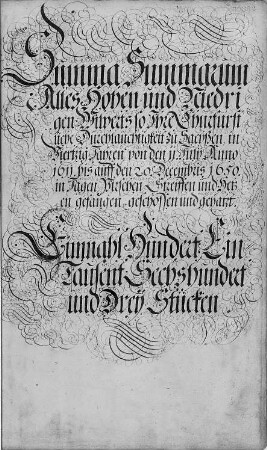 Summa Summarum
Alles Hohen und Niedri
gen Wilperts so Ihre Churfürst
liche Durchlauchtigkeit zu Sachßen, in
Viertzig Jahren von den 11. July Anno
1611 bis auff den 20 Decembris 1650.
in Jagen, Pirschen, Streiffen und Het-
zen gefangen, geschoßen und gehatzt.
Einmahl Hundert, Ein
Tausent Sechshundert
und Drey Stücken